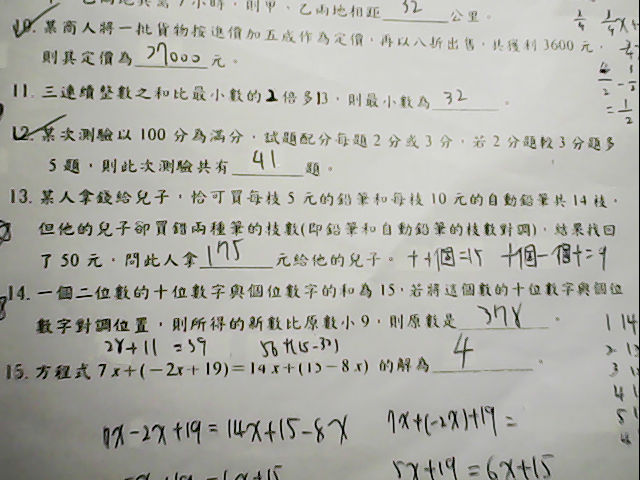 乙兩地共需7小時，則甲、乙兩地相距 32 公里。
10. 某商人將一批貨物按進價加五成作為定價，再以八折出售，共獲利3600元，
則其定價為 27000 元。
11. 三連續整數之和比最小數的2倍多13，則最小數為 32 。
12. 某次測驗以100分為滿分，試題配分每題2分或3分，若2分題較3分題多
5題，則此次測驗共有 41 題。
13. 某人拿錢給兒子，恰可買每枝5元的鉛筆和每枝10元的自動鉛筆共14枝，
但他的兒子卻買錯兩種筆的枝數(即鉛筆和自動鉛筆的枝數對調)，結果找回
了50元，問此人拿 175 元給他的兒子。 十+個=15 十個-個十=9
14. 一個二位數的十位數字與個位數字的和為15，若將這個數的十位數字與個位
數字對調位置，則所得的新數比原數小9，則原數是 378 。
28+11 =39
15. 方程式 7x+(-2x+19)=14x+(15-8x) 的解為 4 。
7x-2x+19=14x+15-8x 7x+(-2x)+19=
5x+19=6x+15